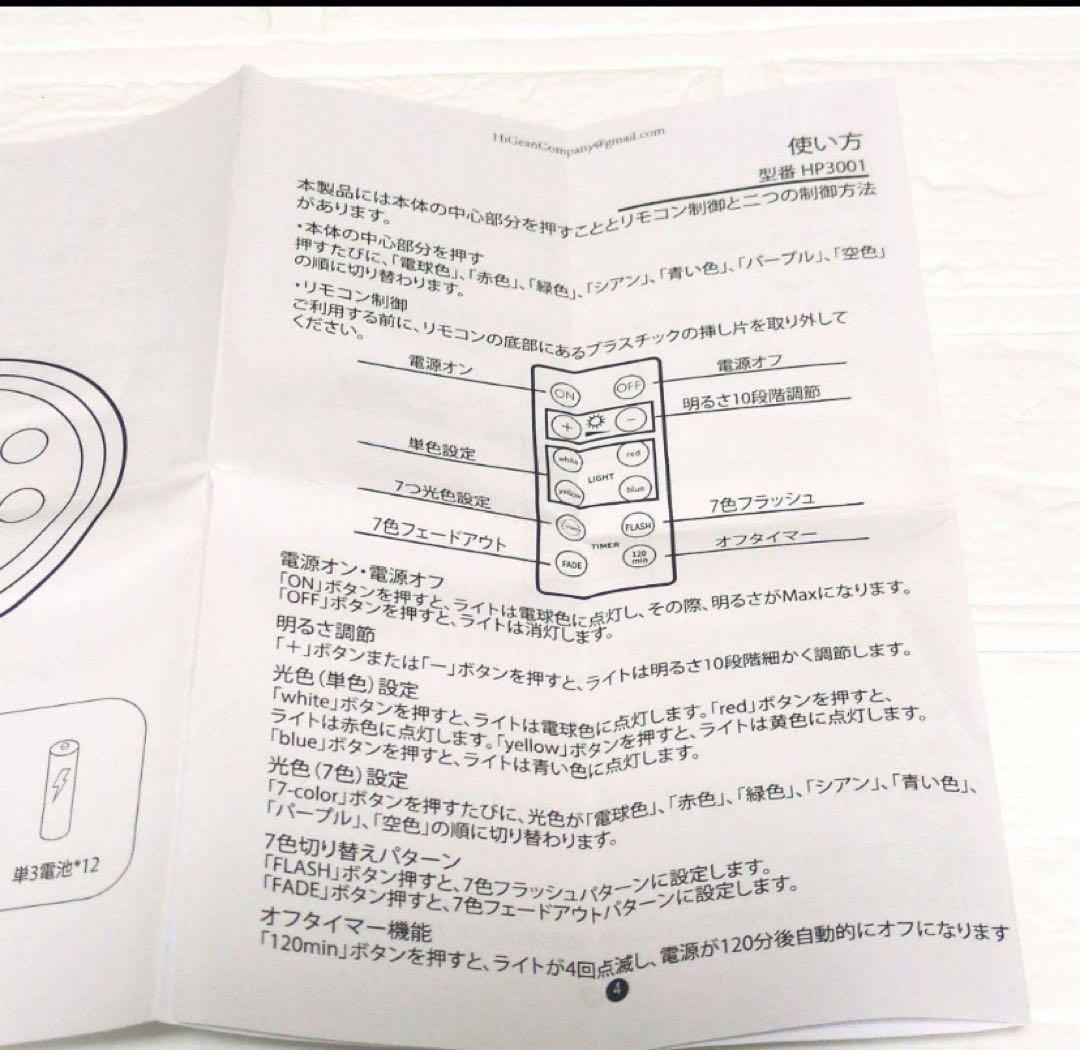 HiGeanCompany@gmail.com
使い方
型番 HP3001
本製品には本体の中心部分を押すこととリモコン制御と二つの制御方法
があります。
・本体の中心部分を押す
押すたびに、「電球色」、「赤色」、「緑色」、「シアン」、「青い色」、「パープル」、「空色」
の順に切り替わります。
・リモコン制御
ご利用する前に、リモコンの底部にあるプラスチックの挿し片を取り外して
ください。
電源オン
電源オフ
ON
OFF
明るさ10段階調節
+
−
単色設定
white
red
LIGHT
yellow
blue
7つ光色設定
7色フラッシュ
FLASH
7色フェードアウト
オフタイマー
TIMER
FADE
120
min
電源オン・電源オフ
「ON」ボタンを押すと、ライトは電球色に点灯し、その際、明るさがMaxになります。
「OFF」ボタンを押すと、ライトは消灯します。
明るさ調節
「＋」ボタンまたは「ー」ボタンを押すと、ライトは明るさ10段階細かく調節します。
光色（単色）設定
「white」ボタンを押すと、ライトは電球色に点灯します。「red」ボタンを押すと、
ライトは赤色に点灯します。「yellow」ボタンを押すと、ライトは黄色に点灯します。
「blue」ボタンを押すと、ライトは青い色に点灯します。
光色（7色）設定
「7-color」ボタンを押すたびに、光色が「電球色」、「赤色」、「緑色」、「シアン」、「青い色」、
「パープル」、「空色」の順に切り替わります。
7色切り替えパターン
「FLASH」ボタン押すと、7色フラッシュパターンに設定します。
「FADE」ボタン押すと、7色フェードアウトパターンに設定します。
オフタイマー機能
「120min」ボタンを押すと、ライトが4回点滅し、電源が120分後自動的にオフになります
4
単3電池*12